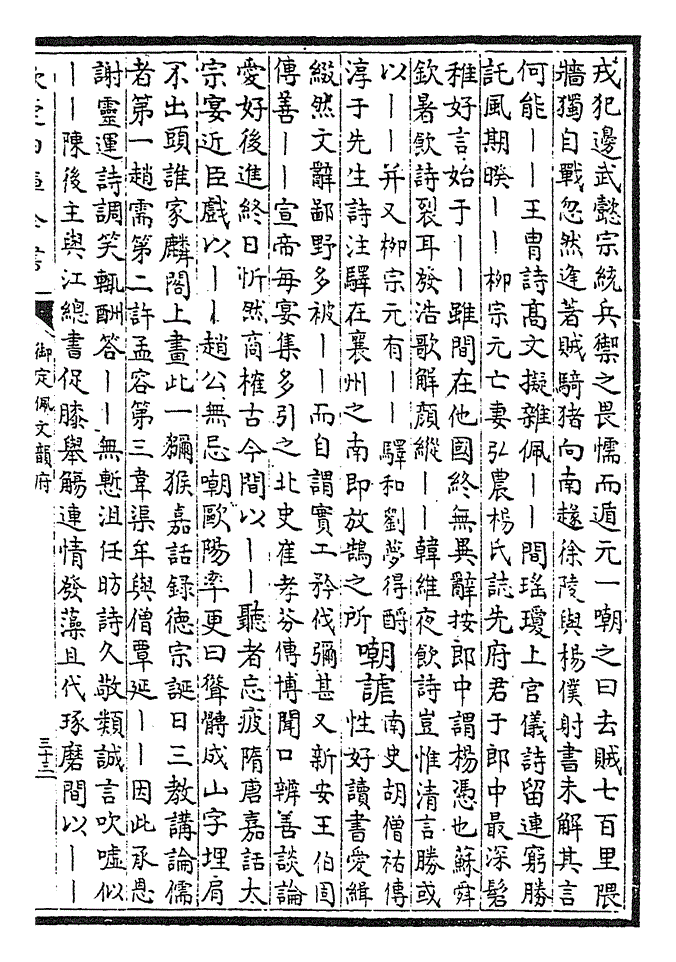 戎犯邊武懿宗統兵禦之畏懦而遁元一嘲之曰去賊七百里隈
牆獨自戰忽然逢著賊騎猪向南趨徐陵與楊僕射書未解其言
何能丨丨王冑詩高文擬雜佩丨丨間瑤瓊上官儀詩留連窮勝
託風期暌丨丨柳宗元亡妻弘農楊氏誌先府君于郎中最深髫
稚好言始于丨丨雖間在他國終無異辭按郎中謂楊憑也蘇舜
欽暑飲詩裂耳發浩歌解顏縱丨丨韓維夜飲詩豈惟清言勝或
以丨丨并又柳宗元有丨丨驛和劉夢得酹
淳于先生詩注驛在襄州之南即放鵠之所
嘲謔
南史胡僧祐傳
性好讀書愛緝
綴然文辭鄙野多被丨丨而自謂實工矜伐彌甚又新安王伯固
傳善丨丨宣帝每宴集多引之北史崔孝芬傳博聞口辨善談論
愛好後進終日忻然商榷古今間以丨丨聽者忘疲隋唐嘉話太
宗宴近臣戲以丨丨趙公無忌嘲歐陽率更曰聳髆成山字埋肩
不出頭誰家麟閣上畫此一獼猴嘉話錄德宗誕日三教講論儒
者第一趙需第二許孟容第三韋渠年與僧覃延丨丨因此承恩
謝靈運詩調笑輒酬答丨丨無慙沮任昉詩久敬類誠言吹噓似
丨丨陳後主與江總書促膝舉觴連情發藻且代琢磨間以丨丨
御定佩文韻府
三十三